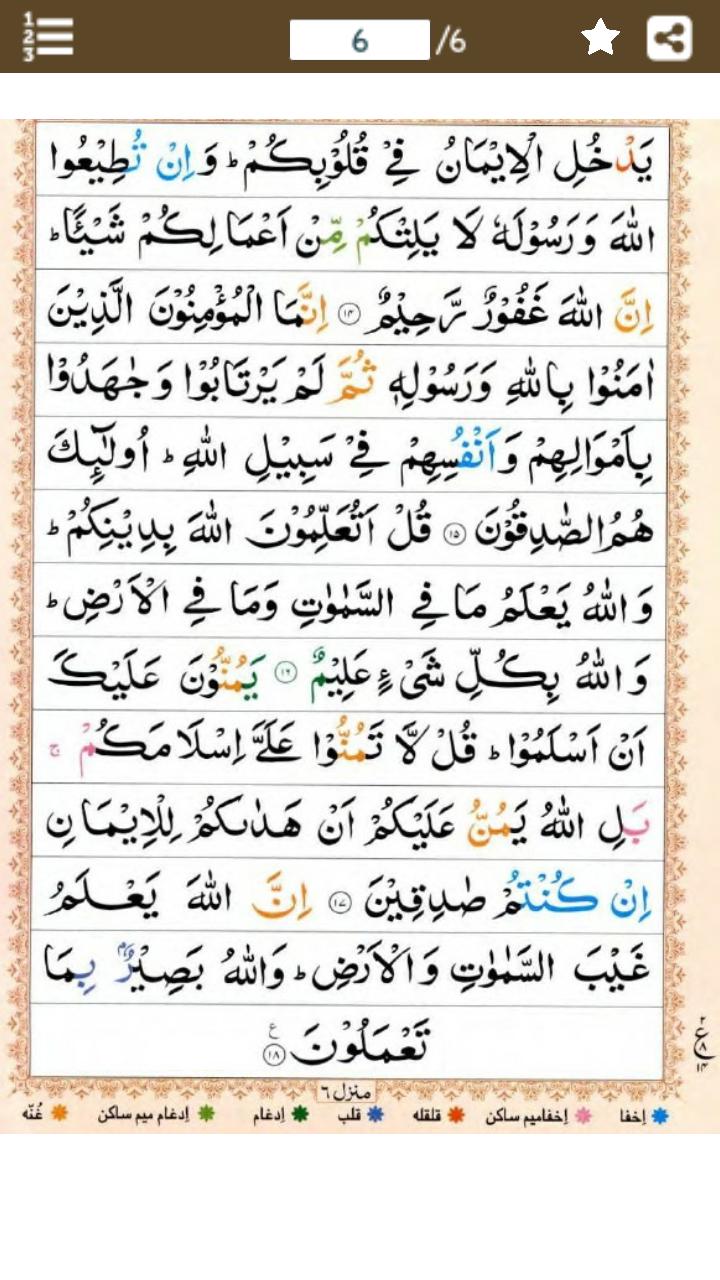 1
2
3
6 /6
يَدْخُلِ الْاِيْمَانُ فِيْ قُلُوْبِكُمْ ؕ وَاِنْ تُطِيْعُوا
اللّٰهَ وَرَسُوْلَهٗ لَا يَلِتْكُمْ مِّنْ اَعْمَالِكُمْ شَيْـًٔا ؕ
اِنَّ اللّٰهَ غَفُوْرٌ رَّحِيْمٌ ۝۱۴ اِنَّمَا الْمُؤْمِنُوْنَ الَّذِيْنَ
اٰمَنُوْا بِاللّٰهِ وَرَسُوْلِهٖ ثُمَّ لَمْ يَرْتَابُوْا وَجٰهَدُوْا
بِاَمْوَالِهِمْ وَاَنْفُسِهِمْ فِيْ سَبِيْلِ اللّٰهِ ؕ اُولٰٓئِكَ
هُمُ الصّٰدِقُوْنَ ۝۱۵ قُلْ اَتُعَلِّمُوْنَ اللّٰهَ بِدِيْنِكُمْ ؕ
وَاللّٰهُ يَعْلَمُ مَا فِي السَّمٰوٰتِ وَمَا فِي الْاَرْضِ ؕ
وَاللّٰهُ بِكُلِّ شَيْءٍ عَلِيْمٌ ۝۱۶ يَمُنُّوْنَ عَلَيْكَ
اَنْ اَسْلَمُوْا ؕ قُلْ لَّا تَمُنُّوْا عَلَيَّ اِسْلَامَكُمْ ۚ
بَلِ اللّٰهُ يَمُنُّ عَلَيْكُمْ اَنْ هَدٰىكُمْ لِلْاِيْمَانِ
اِنْ كُنْتُمْ صٰدِقِيْنَ ۝۱۷ اِنَّ اللّٰهَ يَعْلَمُ
غَيْبَ السَّمٰوٰتِ وَالْاَرْضِ ؕ وَاللّٰهُ بَصِيْرٌۢ بِمَا
تَعْمَلُوْنَ ۝۱۸ ع
۲
ع
۸
۱۴
منزل ۶
اِخفا اِخفامیم ساکن قلقله قلب اِدغام اِدغام میم ساکن غُنّه